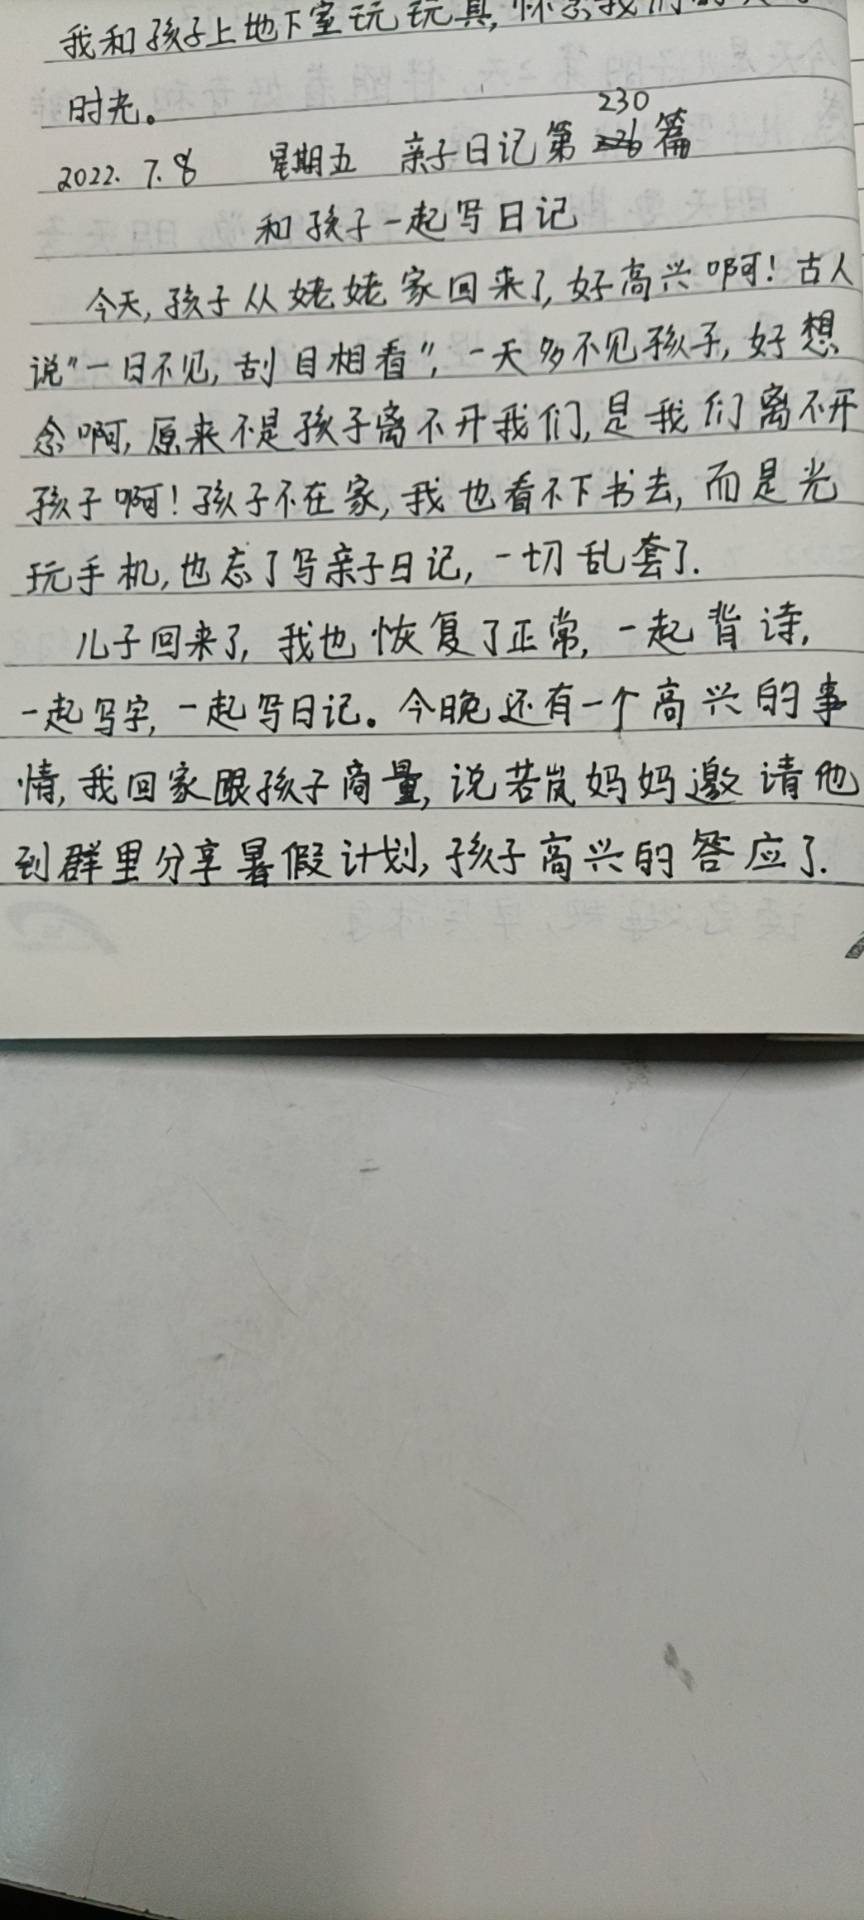 我和孩子上地下室玩玩具,怀念我们的
时光。
230
2022.7.8 星期五 亲子日记第226篇
和孩子一起写日记
今天,孩子从姥姥家回来了,好高兴啊!古人
说"一日不见,刮目相看",一天多不见孩子,好想
念啊,原来不是孩子离不开我们,是我们离不开
孩子啊!孩子不在家,我也看不下书去,而是光
玩手机,也忘了写亲子日记,一切乱套了.
儿子回来了,我也恢复了正常,一起背诗,
一起写字,一起写日记。今晚还有一个高兴的事
情,我回家跟孩子商量,说若岚妈妈邀请他
到群里分享暑假计划,孩子高兴的答应了.